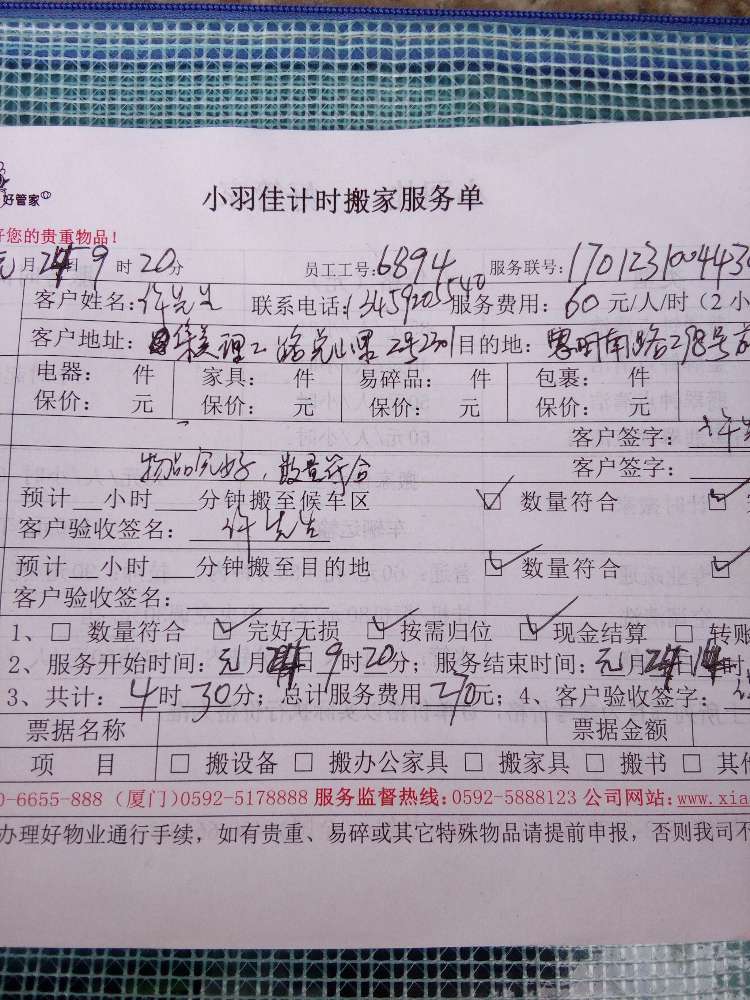 好管家
小羽佳计时搬家服务单
好您的贵重物品！
元月 日 9时20分 员工工号:6894 服务联号:170123100443
客户姓名:许先生 联系电话:13459205540 服务费用: 60 元/人/时（2 小
客户地址: 2号2301 目的地: 思明南路278号
电器: 件 家具: 件 易碎品: 件 包裹: 件
保价: 元 保价: 元 保价: 元 保价: 元
客户签字: 许先
物品完好，数量符合 客户签字:
预计 小时 分钟搬至候车区 ☑ 数量符合 ☑
客户验收签名: 许先生
预计 小时 分钟搬至目的地 ☑ 数量符合 ☑
客户验收签名:
1、□ 数量符合 ☑ 完好无损 ☑ 按需归位 ☑ 现金结算 □ 转账
2、服务开始时间: 元月 日9时20分；服务结束时间: 元月 日 时
3、共计: 4时30分；总计服务费用270元；4、客户验收签字:
票据名称 票据金额
项 目 □ 搬设备 □ 搬办公家具 □ 搬家具 □ 搬书 □ 其
0-6655-888 (厦门)0592-5178888 服务监督热线:0592-5888123 公司网站:www.xia
办理好物业通行手续，如有贵重、易碎或其它特殊物品请提前申报，否则我司不